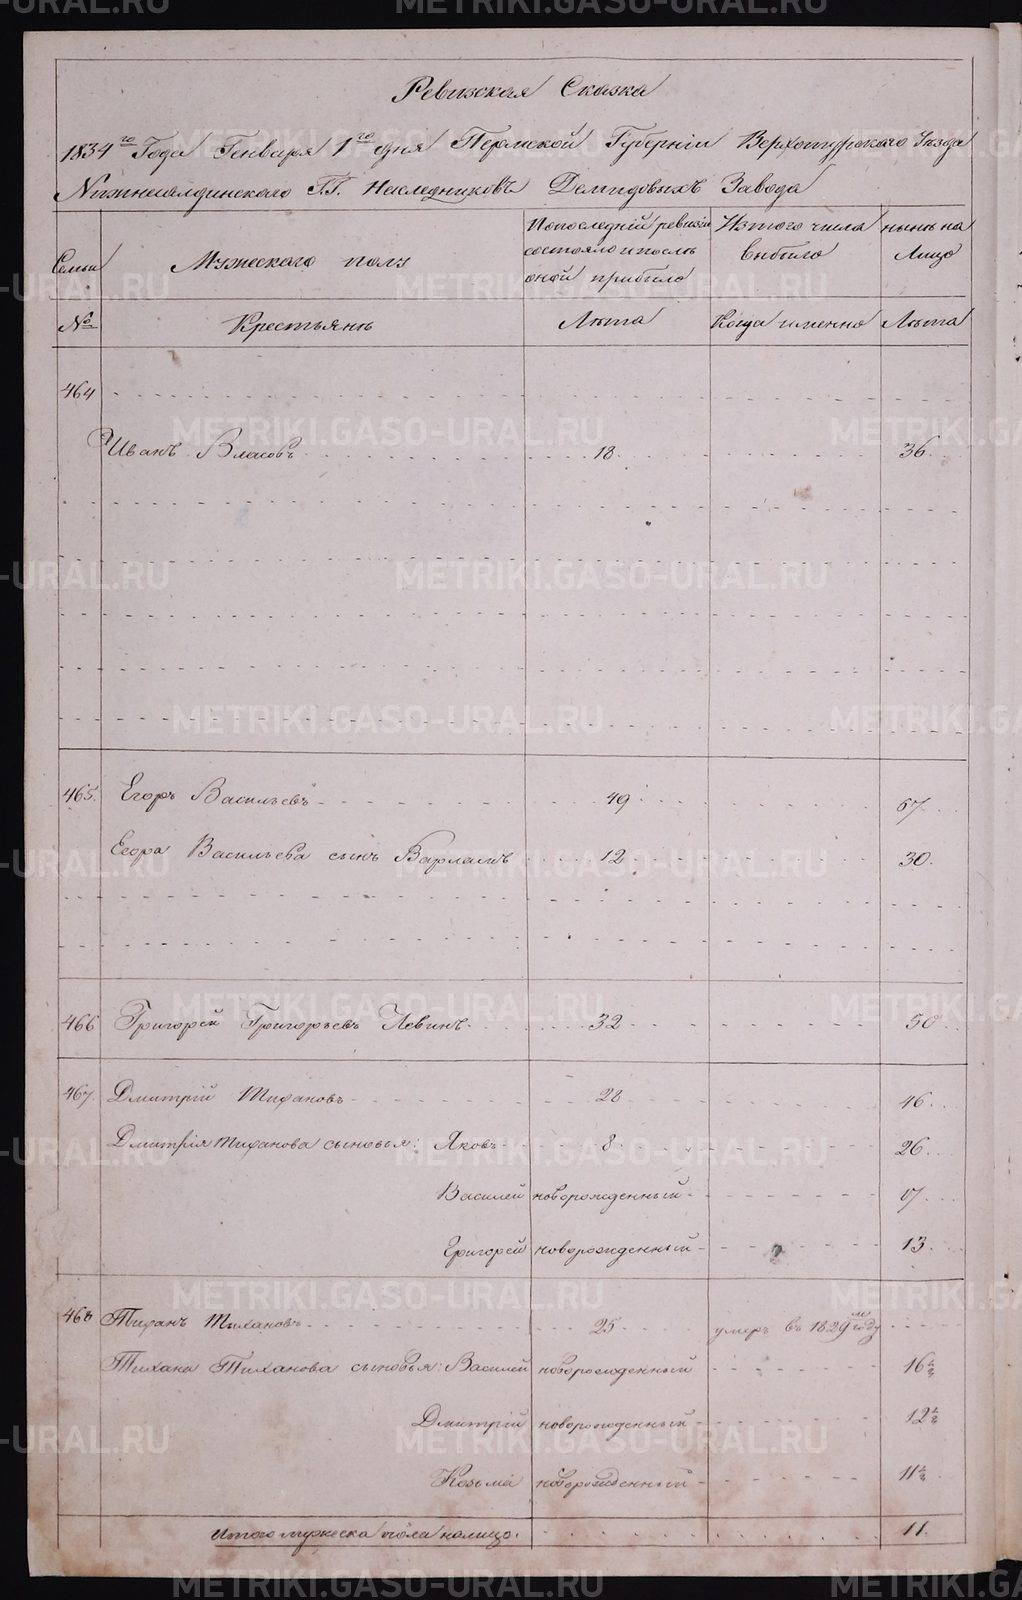 Ревизская Сказка
1834го Года Генваря 1го дня Пермской Губерніи Верхотурскаго Уезда
Нижнесалдинскаго Г.Г. Наследниковъ Демидовыхъ Завода
Семьи
Мужескаго полу
По последней ревизіи состояло и после оной прибыло
Изтого числа выбыло
ныне на Лицо
№
Крестьяне
Лета
Когда именно
Лета
464
Иванъ Власовъ 18. 36.
465. Егоръ Васильевъ 49 67.
Егора Васильева сынъ Варламъ 12 30.
466 Григорей Григорьевъ Левинъ 32 50
467. Дмитрій Тихановъ 28 46.
Дмитрія Тиханова сыновья: Яковъ 8 26.
Василей новорожденный 17.
Григорей новорожденный 13.
468 Тиханъ Тихановъ 25 умеръ въ 1829м году
Тихана Тиханова сыновья: Василей новорожденный 16½
Дмитрій новорожденный 12½
Козьма новорожденный 11½
Итого мужеска пола налицо. 11.
METRIKI.GASO-URAL.RU